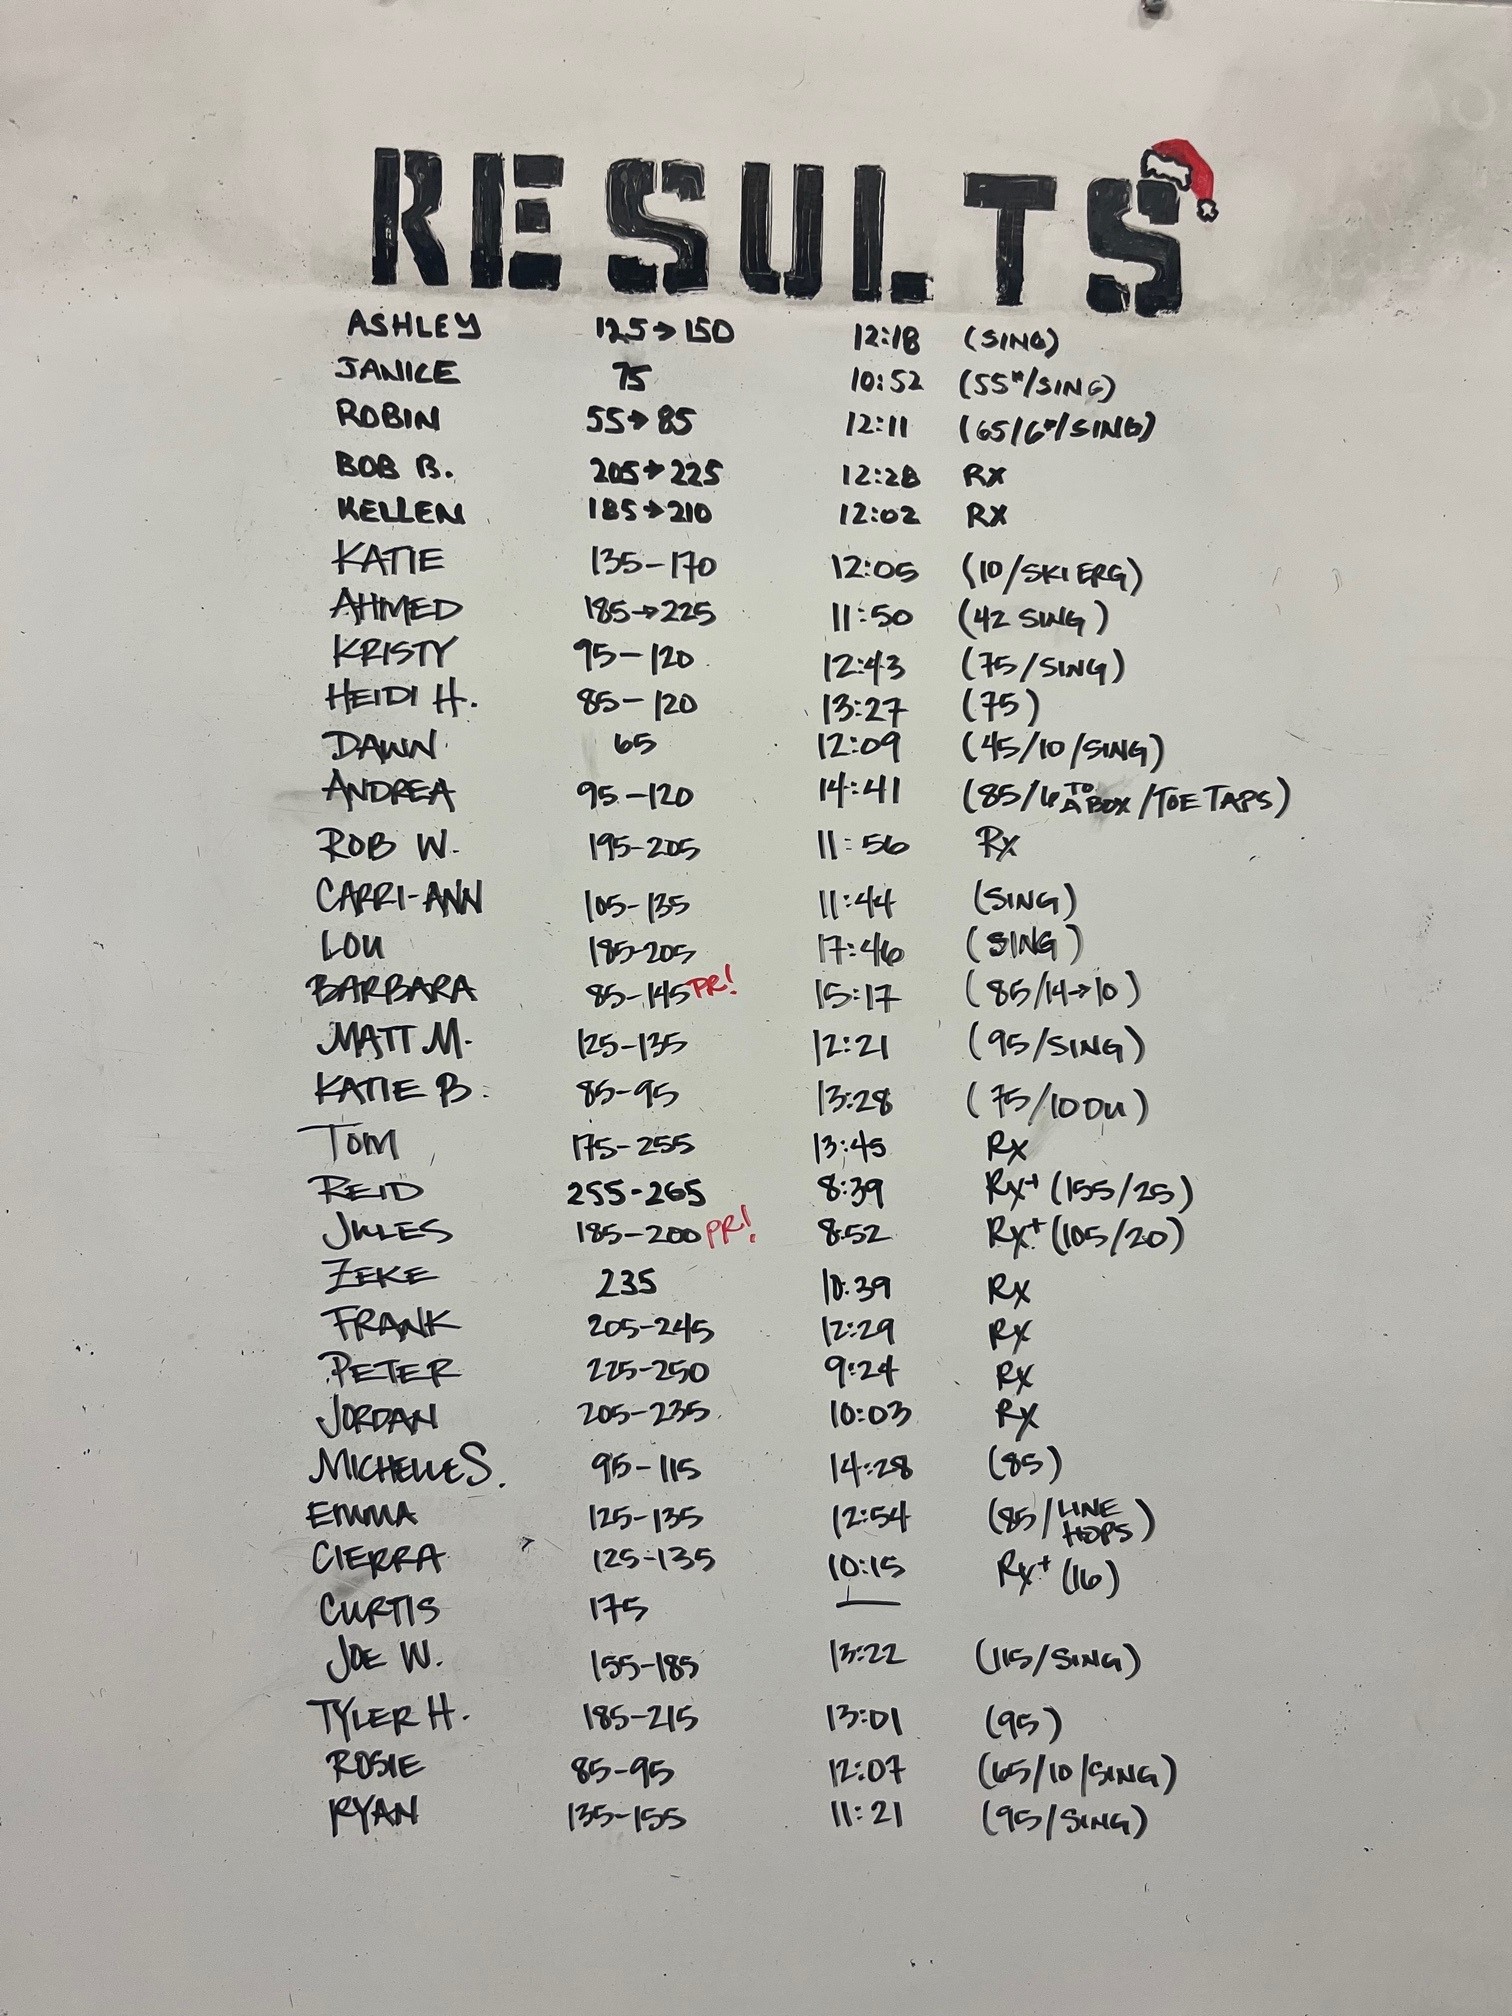 RESULTS
ASHLEY 125→150 12:18 (SING)
JANICE 75 10:52 (55#/SING)
ROBIN 55→85 12:11 (65/6#/SING)
BOB B. 205→225 12:28 RX
KELLEN 185→210 12:02 RX
KATIE 135-170 12:05 (10/SKI ERG)
AHMED 185→225 11:50 (42 SING)
KRISTY 95-120 12:43 (75/SING)
HEIDI H. 85-120 13:27 (75)
DAWN 65 12:09 (45/10/SING)
ANDREA 95-120 14:41 (85/6 TO A BOX/TOE TAPS)
ROB W. 195-205 11:56 Rx
CARRI-ANN 105-135 11:44 (SING)
LOU 185-205 17:46 (SING)
BARBARA 85-145 PR! 15:17 (85/14→10)
MATT M. 125-135 12:21 (95/SING)
KATIE B. 85-95 13:28 (75/10 DU)
TOM 175-255 13:45 Rx
REID 255-265 8:39 Rx+ (155/25)
JULES 185-200 PR! 8:52 Rx+ (105/20)
ZEKE 235 10:39 Rx
FRANK 205-245 12:29 Rx
PETER 225-250 9:24 Rx
JORDAN 205-235 10:03 Rx
MICHELLE S. 95-115 14:28 (85)
EMMA 125-135 12:54 (85/LINE HOPS)
CIERRA 125-135 10:15 Rx+ (16)
CURTIS 175 —
JOE W. 155-185 13:22 (115/SING)
TYLER H. 185-215 13:01 (95)
ROSIE 85-95 12:07 (65/10/SING)
RYAN 135-155 11:21 (95/SING)